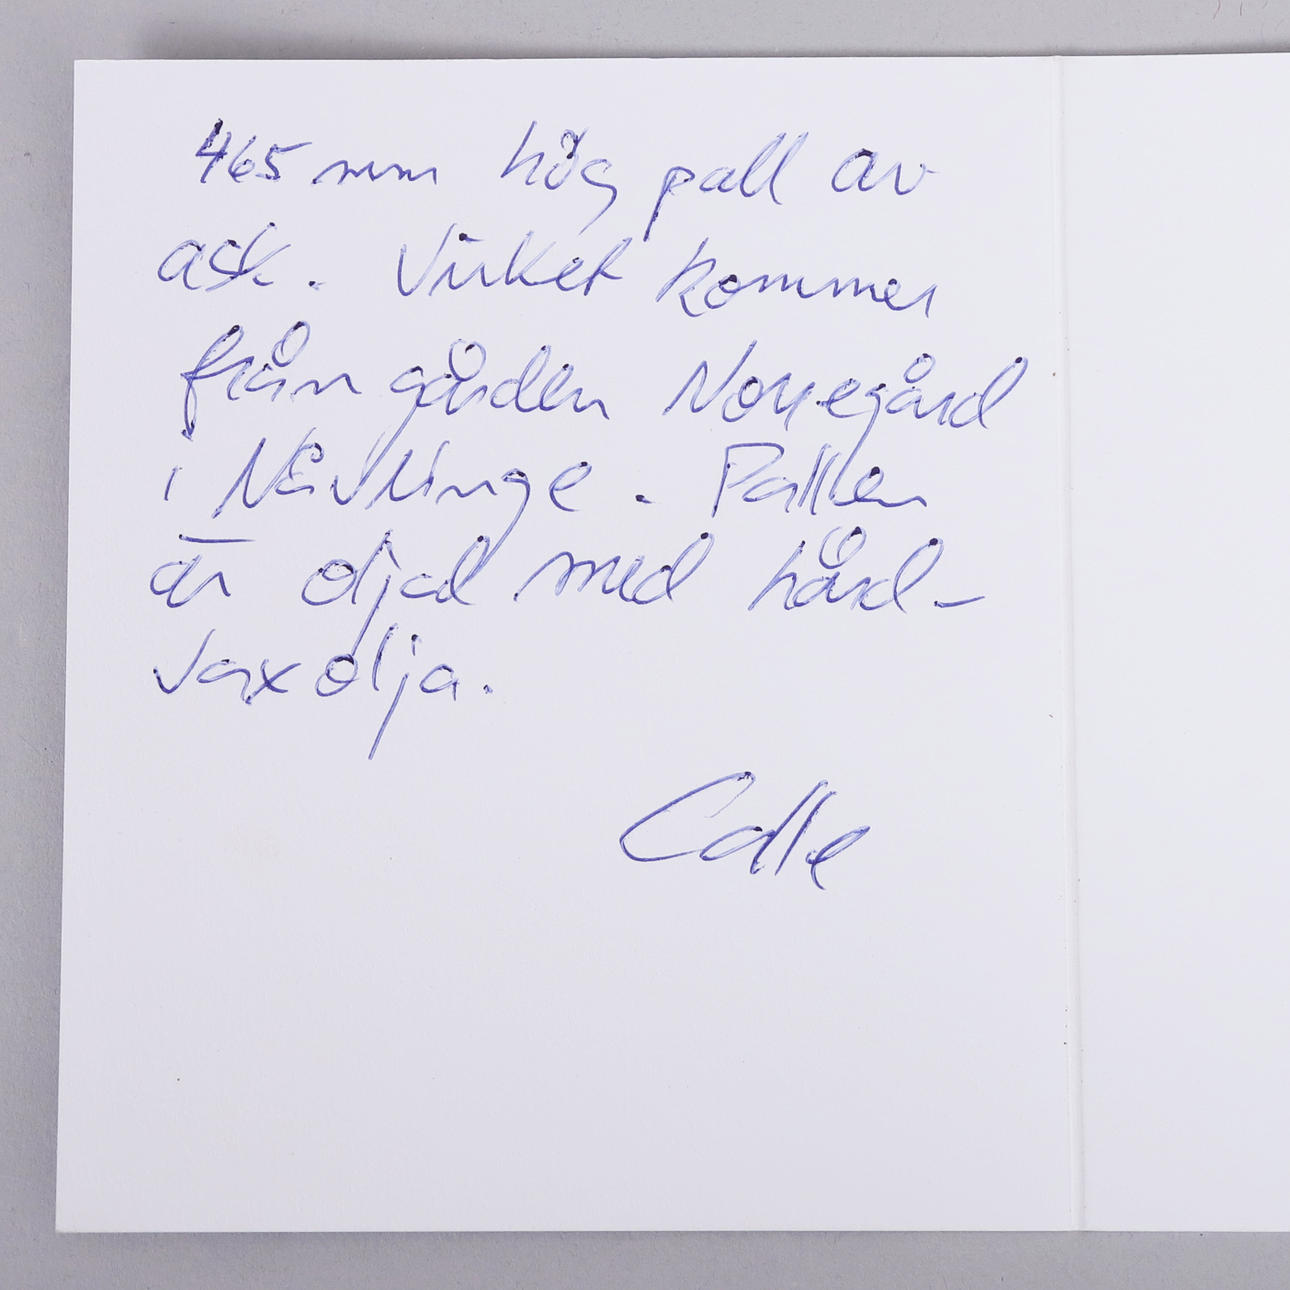 465 mm hög pall av
ask. Virket kommer
från gården Norregård
i Nävlinge. Pallen
är oljad med hård-
vaxolja.
Calle